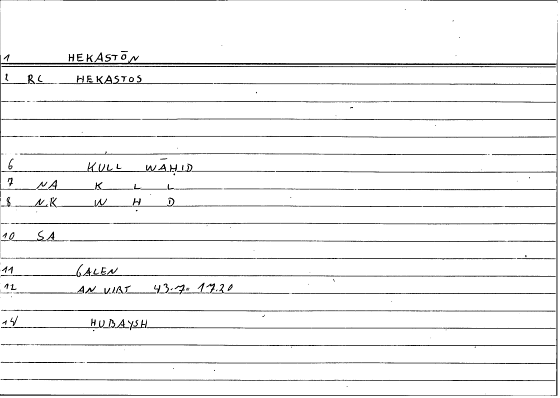 1 HEKASTŌN
2 RC HEKASTOS
6 KULL WĀḤID
7 NA K L L
8 NK W Ḥ D
10 SA
11 GALEN
12 AN VIRT 43.7. 17.20
14 ḤUBAYSH